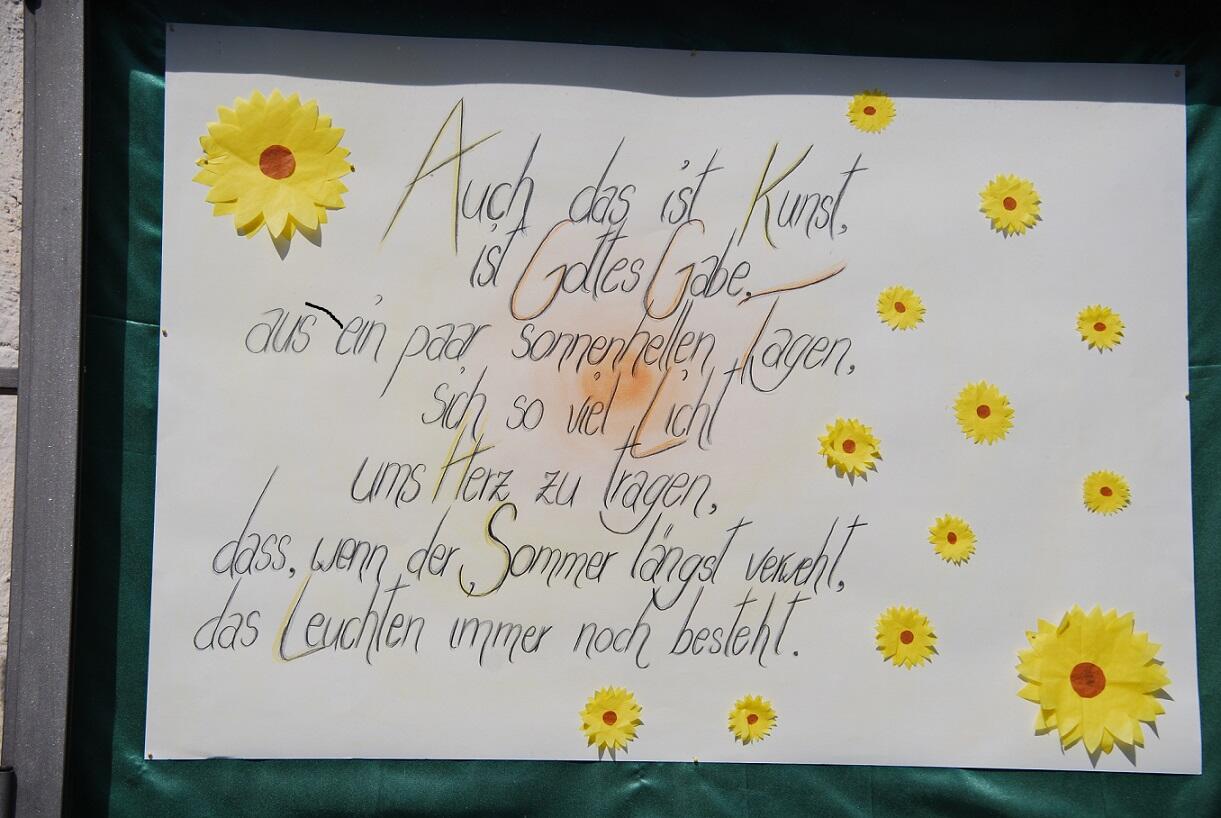 Auch das ist Kunst,
ist Gottes Gabe,
aus ein paar sonnenhellen Tagen,
sich so viel Licht
ums Herz zu tragen,
dass, wenn der Sommer längst verweht,
das Leuchten immer noch besteht.